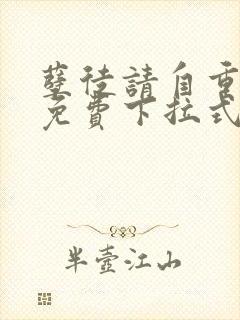 孽徒請自重
免費下拉式
半壺江山